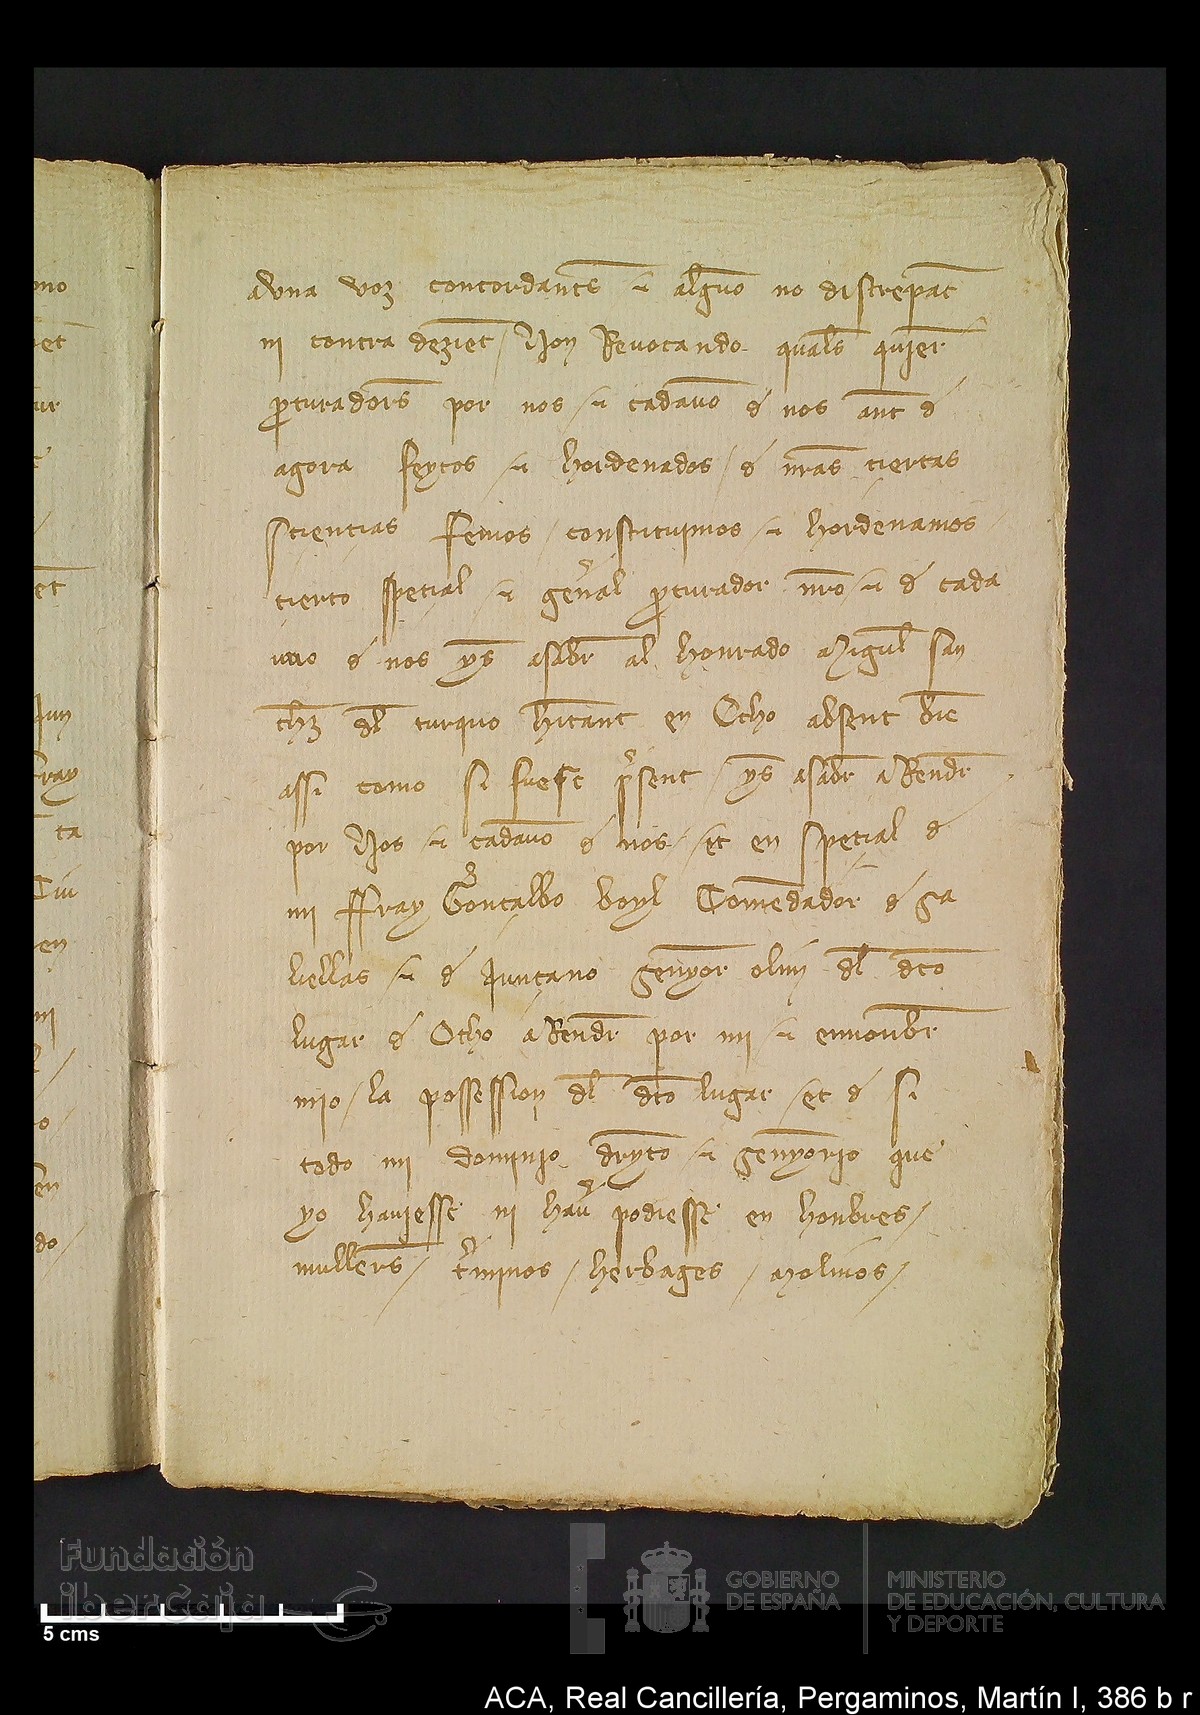 mo
avna voz concordants et alguno no discrepant
ni contra dezient / Non Revocando quals quier
procuradors por nos / et cadauno de nos ant de
agora feytos / et hordenados / de nras ciertas
sciencias Femos / constituymos / et hordenamos
cierto special / et general procurador nro / et de cada
uno de nos yes asaber al honrado Miguel san
chez del turquo habitant en Ocho absent bie
assi como si fuesse present / yes asaber a Rendre
por Nos / et cadauno de nos / et en special de
mi Ffray Goncalbo boyl Comendador de ga
liellas / et de Juncano senyor olim del dcto
lugar de Ocho a Rendre por mi / et en nonbre
mio / la possession del dcto lugar / et de si
todo mi dominio dreyto / et senyorio que
yo hauiesse ni hauer podiesse en honbres /
mullers / terminos / herbages / Molinos /
Fundación
iberCaja
5 cms
GOBIERNO
DE ESPAÑA
MINISTERIO
DE EDUCACIÓN, CULTURA
Y DEPORTE
ACA, Real Cancillería, Pergaminos, Martín I, 386 b r